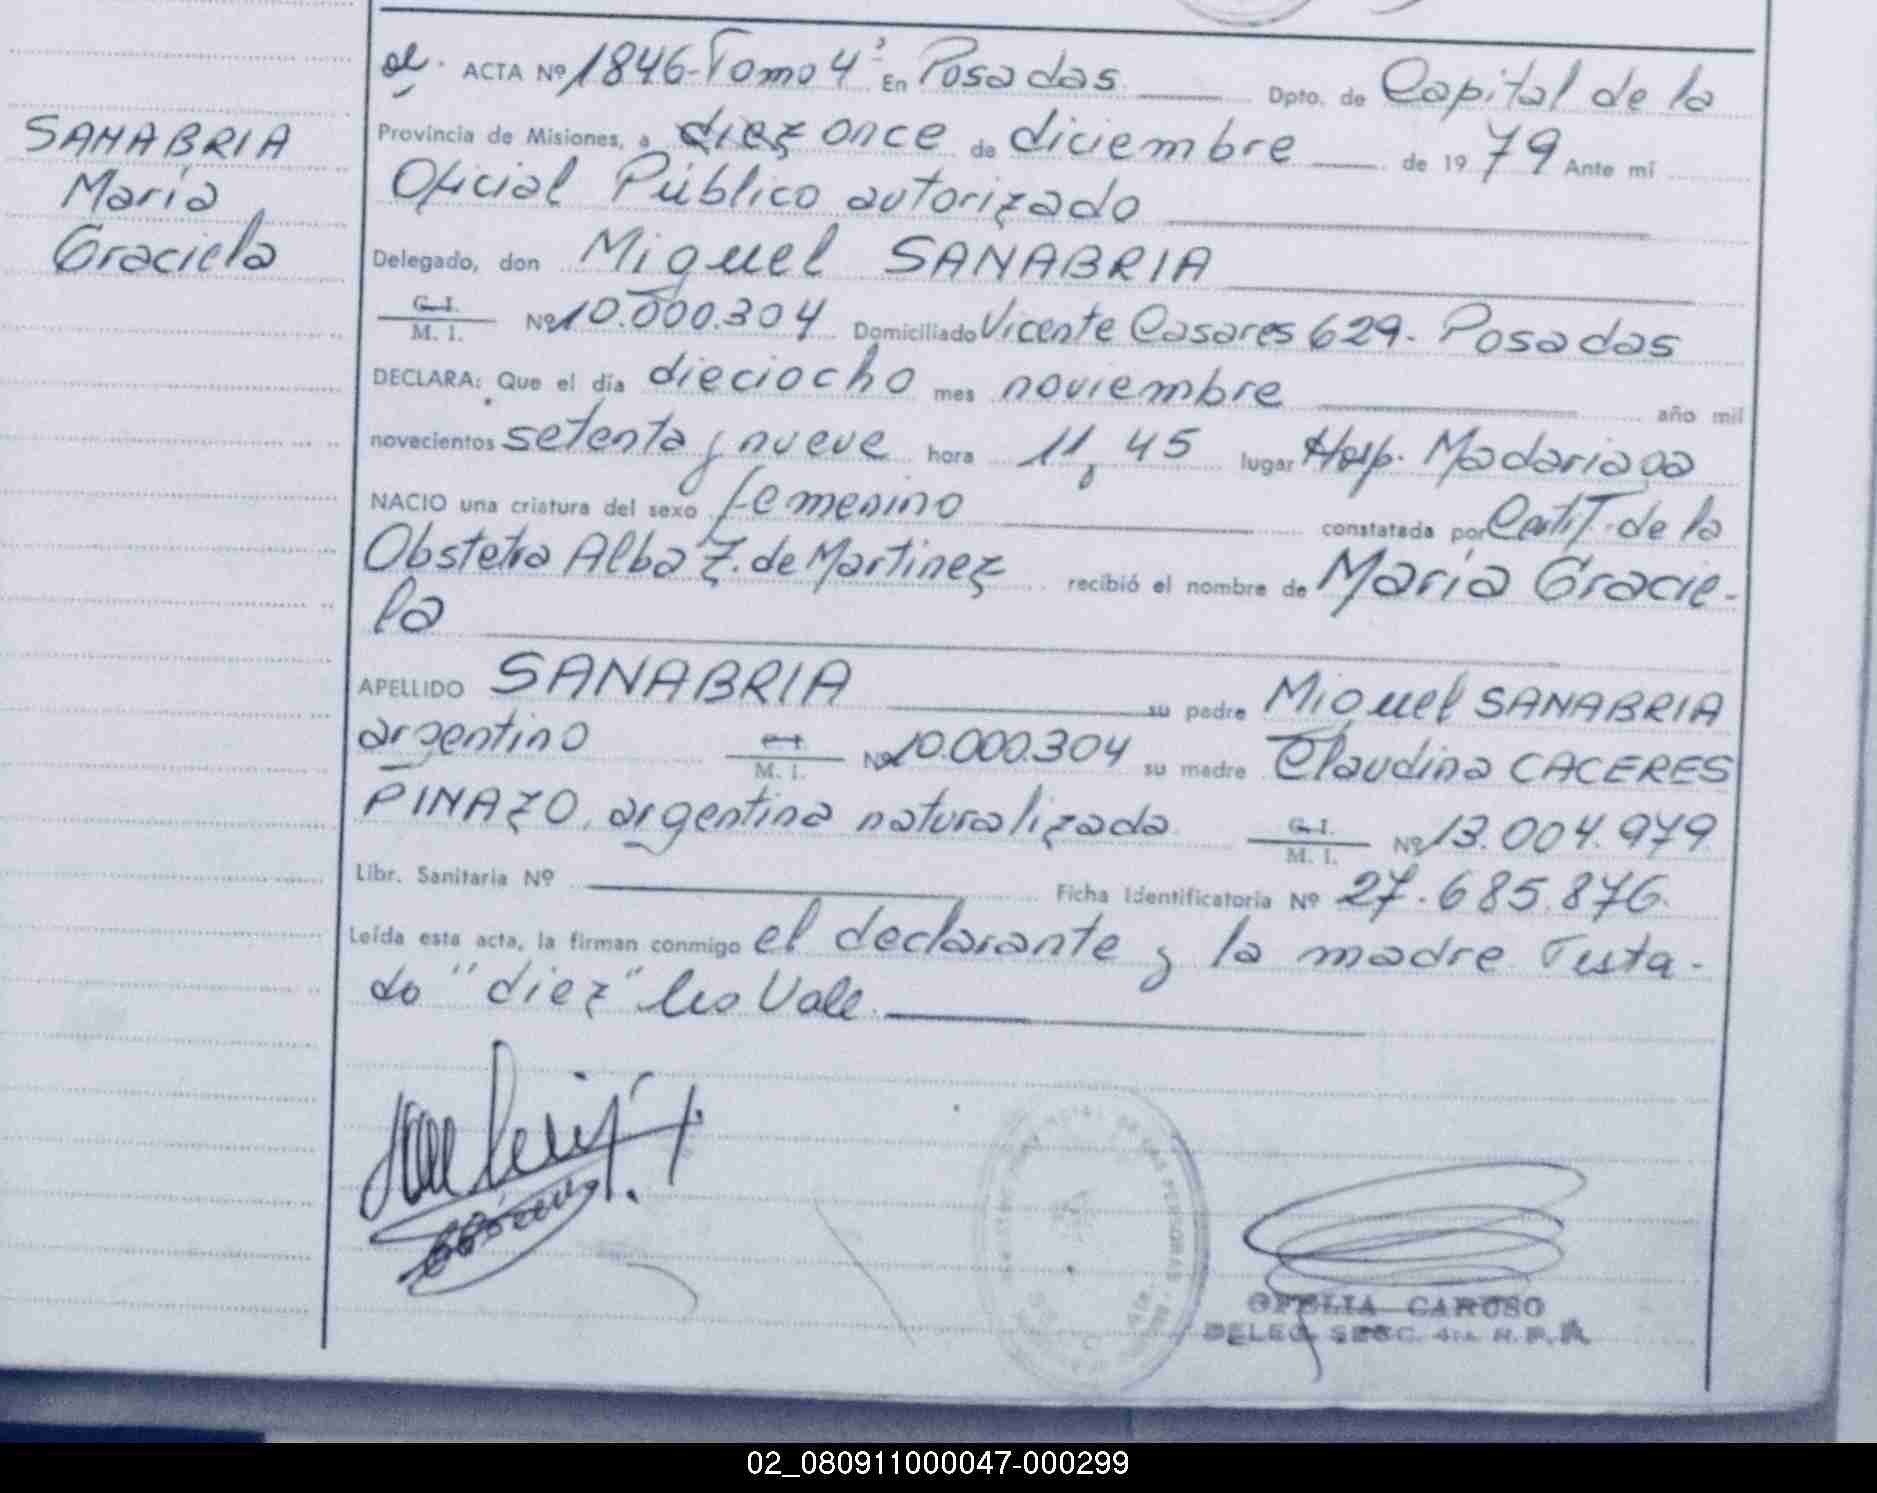 SANABRIA
María
Graciela
ACTA Nº 1846-Tomo 4º En Posadas Dpto. de Capital de la
Provincia de Misiones, a diez once de diciembre de 1979 Ante mí
Oficial Público autorizado
Delegado, don Miguel SANABRIA
C. I.
M. I. Nº 10.000.304 Domiciliado Vicente Casares 629- Posadas
DECLARA: Que el día dieciocho mes noviembre año mil
novecientos setenta y nueve hora 11,45 lugar Hosp. Madariaga
NACIO una criatura del sexo femenino constatada por Certif. de la
Obstetra Alba Z. de Martinez recibió el nombre de María Gracie-
la
APELLIDO SANABRIA su padre Miguel SANABRIA
argentino M. I. Nº 10.000.304 su madre Claudina CACERES
PINAZO, argentina naturalizada C. I.
M. I. Nº 13.004.979
Libr. Sanitaria Nº Ficha Identificatoria Nº 27.685.876
Leída esta acta, la firman conmigo el declarante y la madre Testa-
do "diez" No Vale.
OFELIA CARUSO
DELEG. SECC. 4ta. R. P. P.
02_080911000047-000299